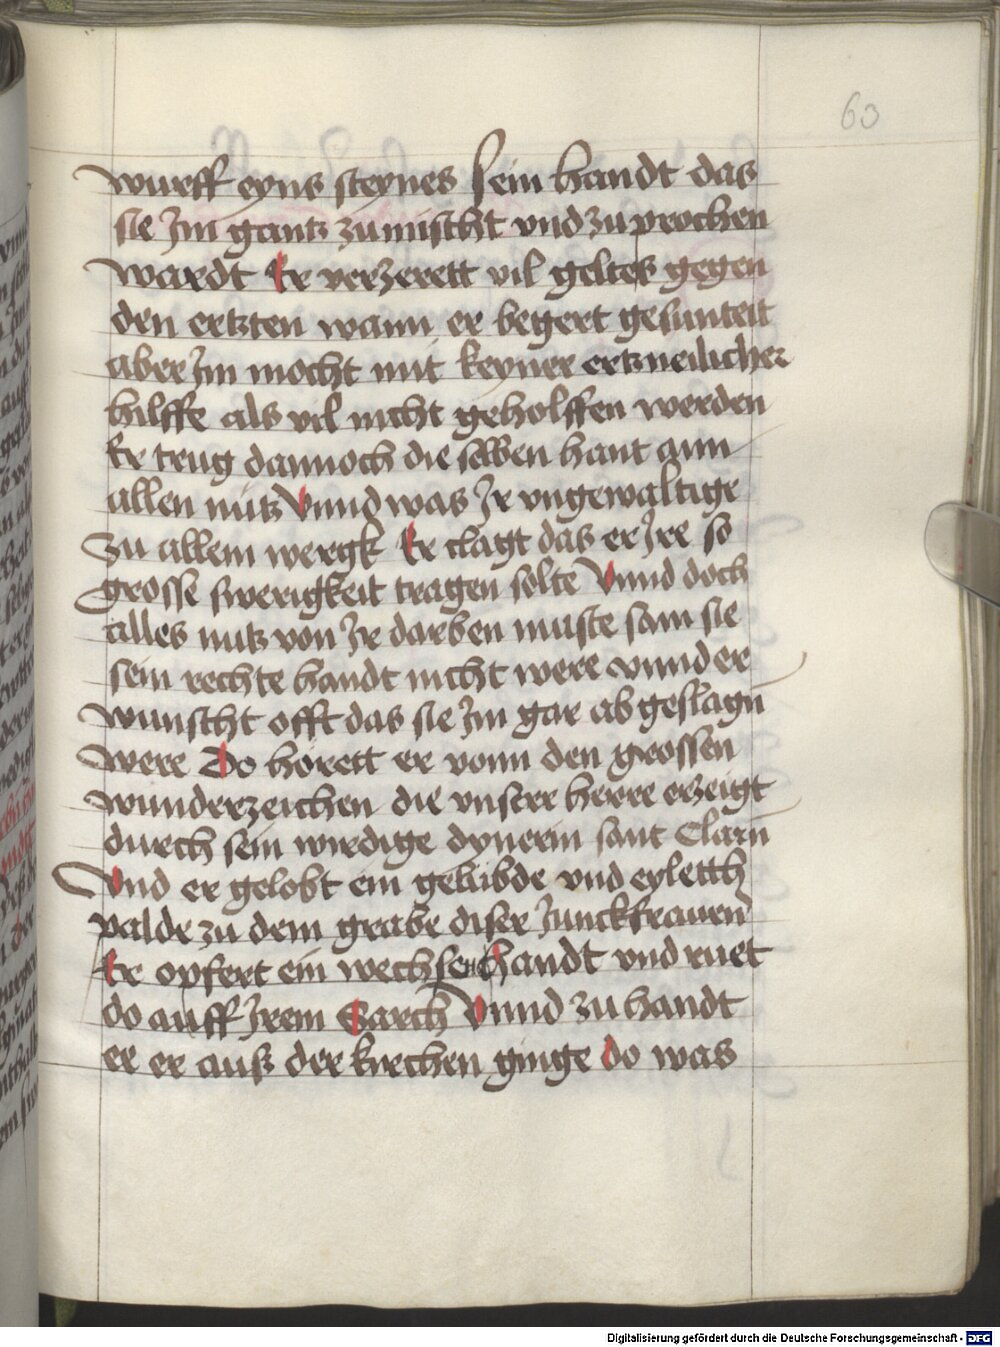 63
wurff eyns steynes sein handt das
sie Jm gantz zumischt vnd zu prochen
wardt Er verzerett vil geltes gegen
den ertzten wann er begert gesunteit
aber Jm mocht mit keyner ertzneilicher
hilffe als vil nicht geholffen werden
Er trug dannoch die selben hant ann
allen nutz Vnnd was Jr vngewaltige
zu allem wergk Er clagt das er Jre so
grosse swerigkeit tragen solte Vnnd doch
alles nutz von Jr darben muste sam sie
sein rechte handt nicht were vnnd er
wunscht offt das sie Jm gar abgeslagn
were Do hörett er vonn den grossen
wunderzeichen die vnsere herre erzeigt
durch sein wirdige dynerin sant Claru
Vnd er gelobt ein gelubde vnd eyletth
palde zu dem grabe diser Junckfrauen
Er opfert ein wechsen handt vnd ruet
do auff Jrem Sarch Vnnd zu handt
er er auß der kirchen ginge do was
Digitalisierung gefördert durch die Deutsche Forschungsgemeinschaft - DFG